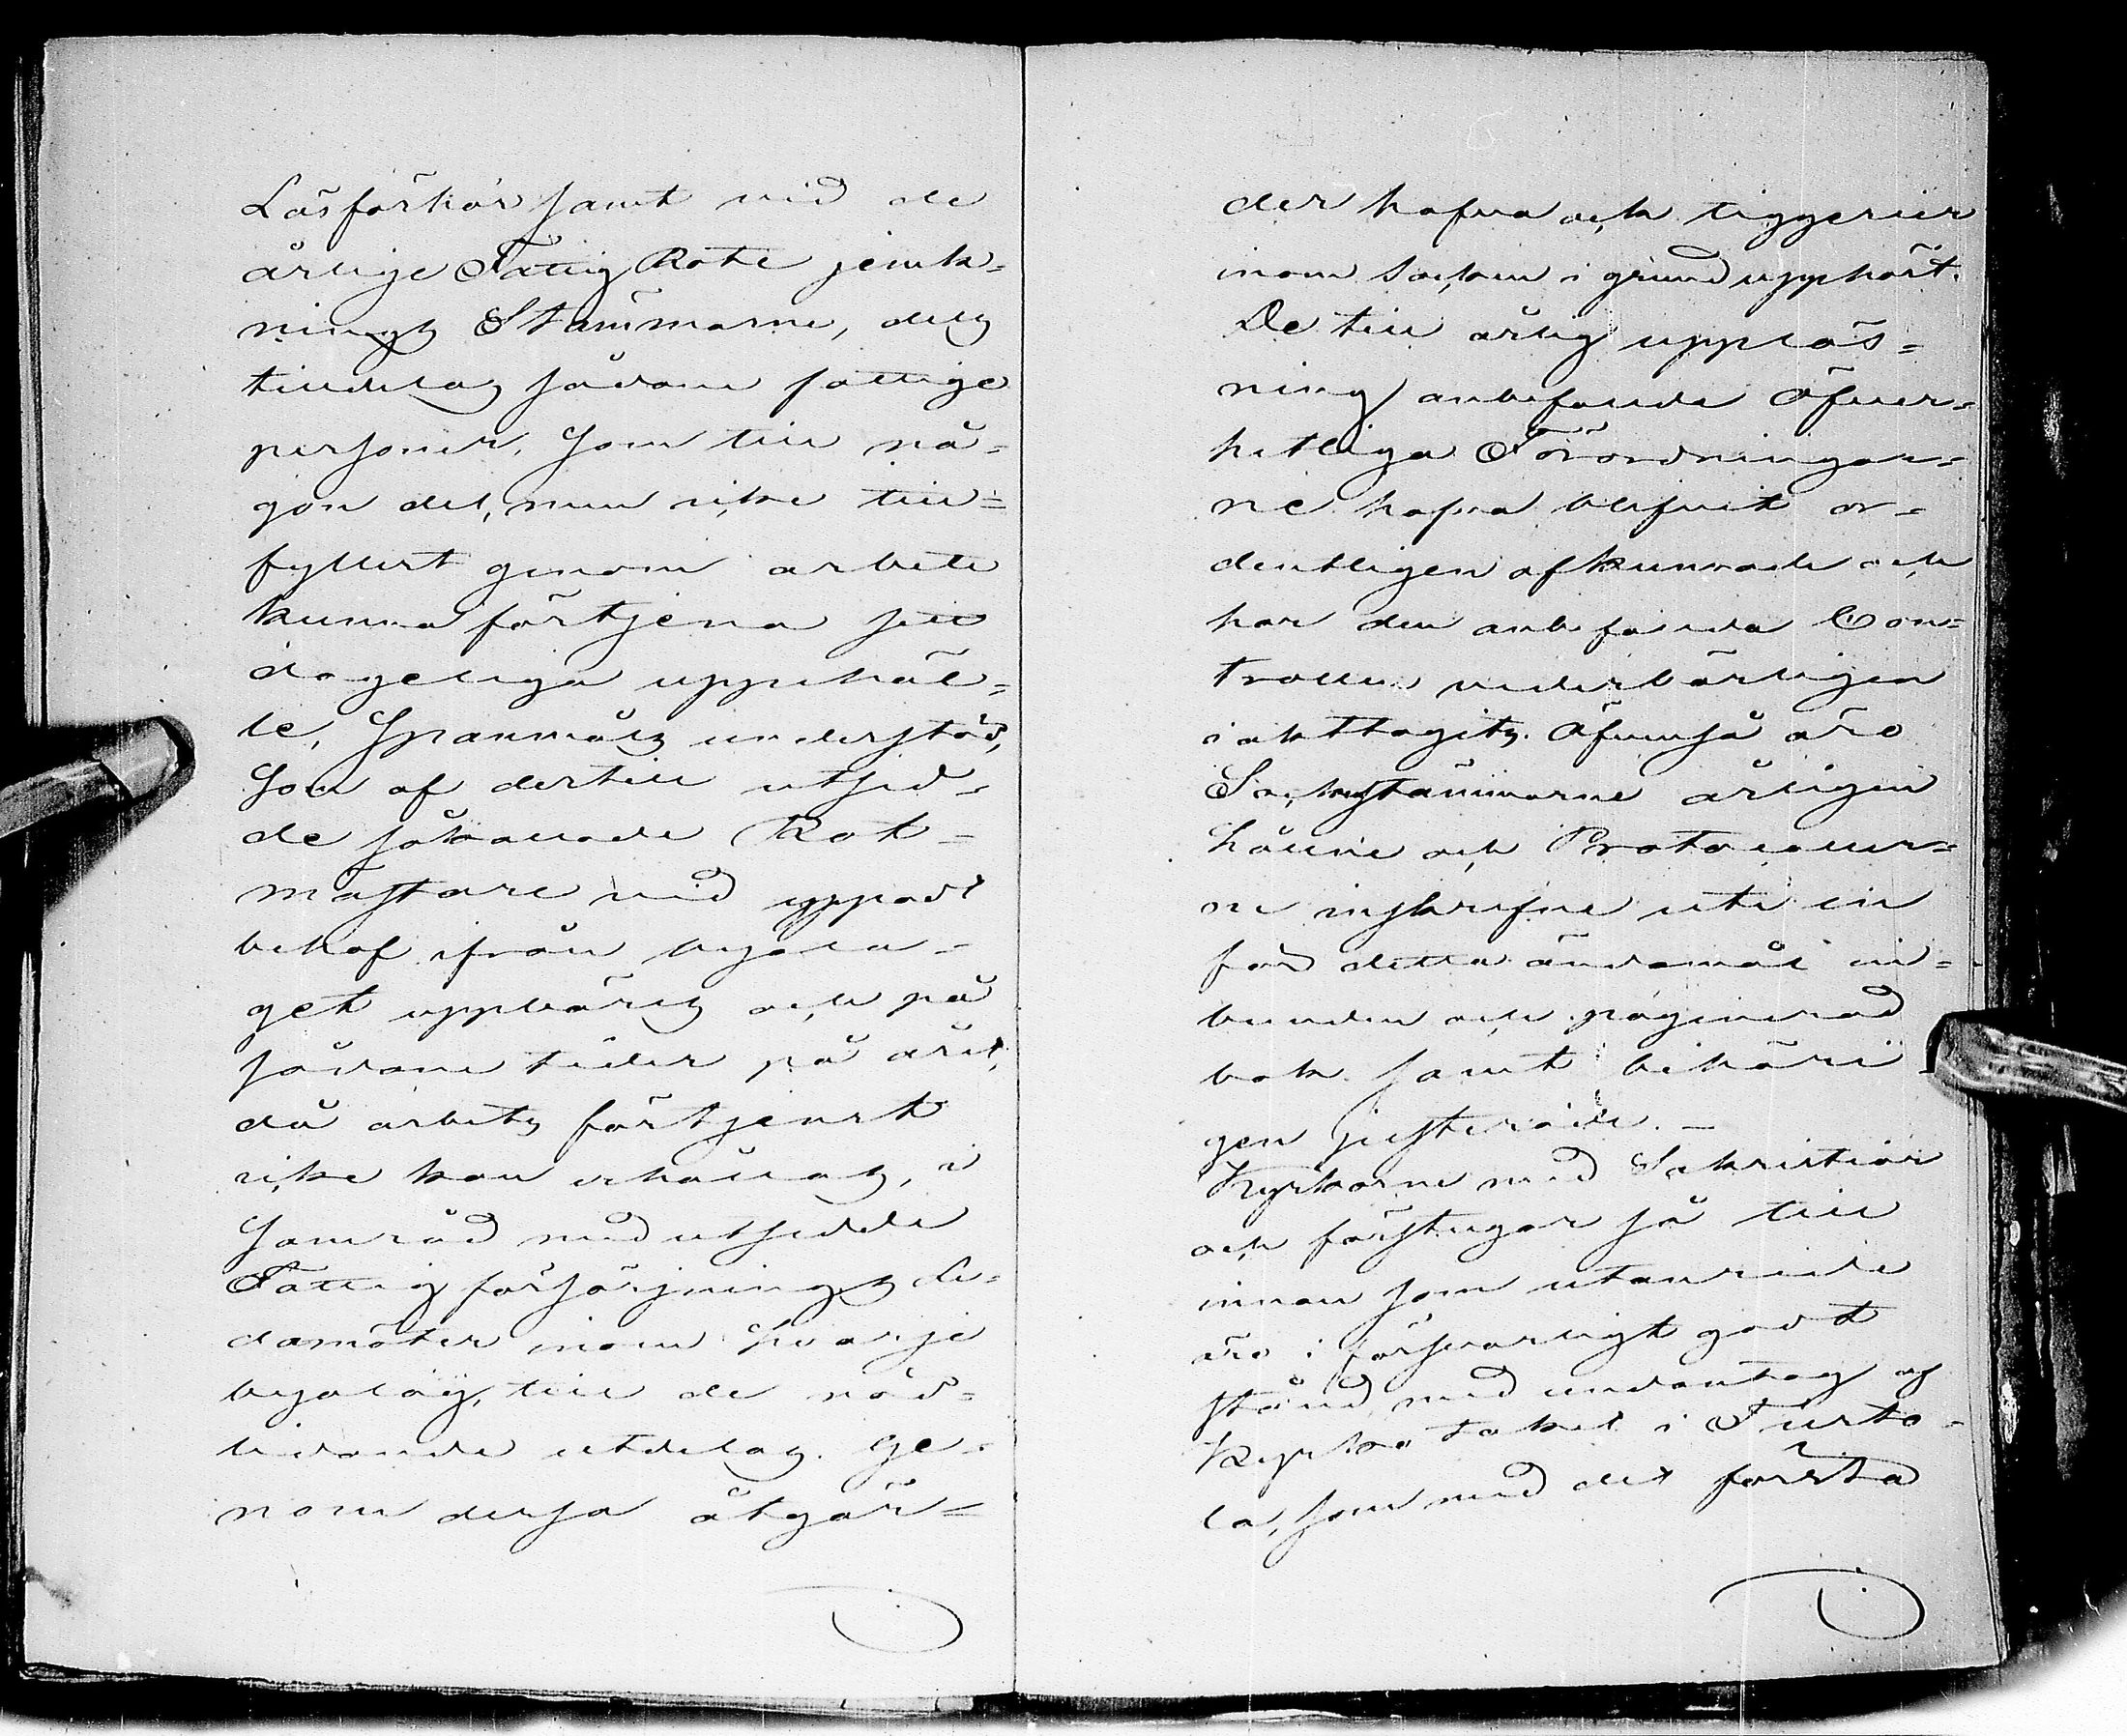 Läsförhör samt vid de
årlige Fattig Rote jemk-
nings Stämmorne, dels
tilldelas sådane fattige
personer, som till nå-
gon del, men icke till-
fyllest genom arbete
kunna förtjena sitt
dageliga uppehäl-
le, Spanmåls understöd,
som af dertill utsed-
de så kallade Rot-
mästare vid uppadt
behof ifrån byala-
get uppbäres och på
sådane tider på året,
då arbets förtjenst
icke kan erhållas, i
samråd med utsedde
Fattigförsörjnings Le-
damöter inom hvarje
byalag, till de nöd-
lidande utdelas. Ge-
nom dessa åtgär-
der hafva ock tiggerier
inom socknen i grund upphört.
De till årlig uppläs-
ning anbefallda Öfver-
hetliga Förordningar-
ne hafva blifvit or-
dentligen afkunnade och
har den anbefallda Con-
trollen vederbörligen
iakttagits. Äfvenså äro
Sockenstämmorne årligen
hållne och Protocoller-
ne inskrefne uti en
för detta ändamål in-
bunden och paginerad
bok samt behöri
gen justerade. -
Kyrkorne med Sakristior
och förstugor så till
innan som utanrede
äro i försvarligt godt
stånd, med undantag af
Kyrkotaket i Turto-
la, som med det första